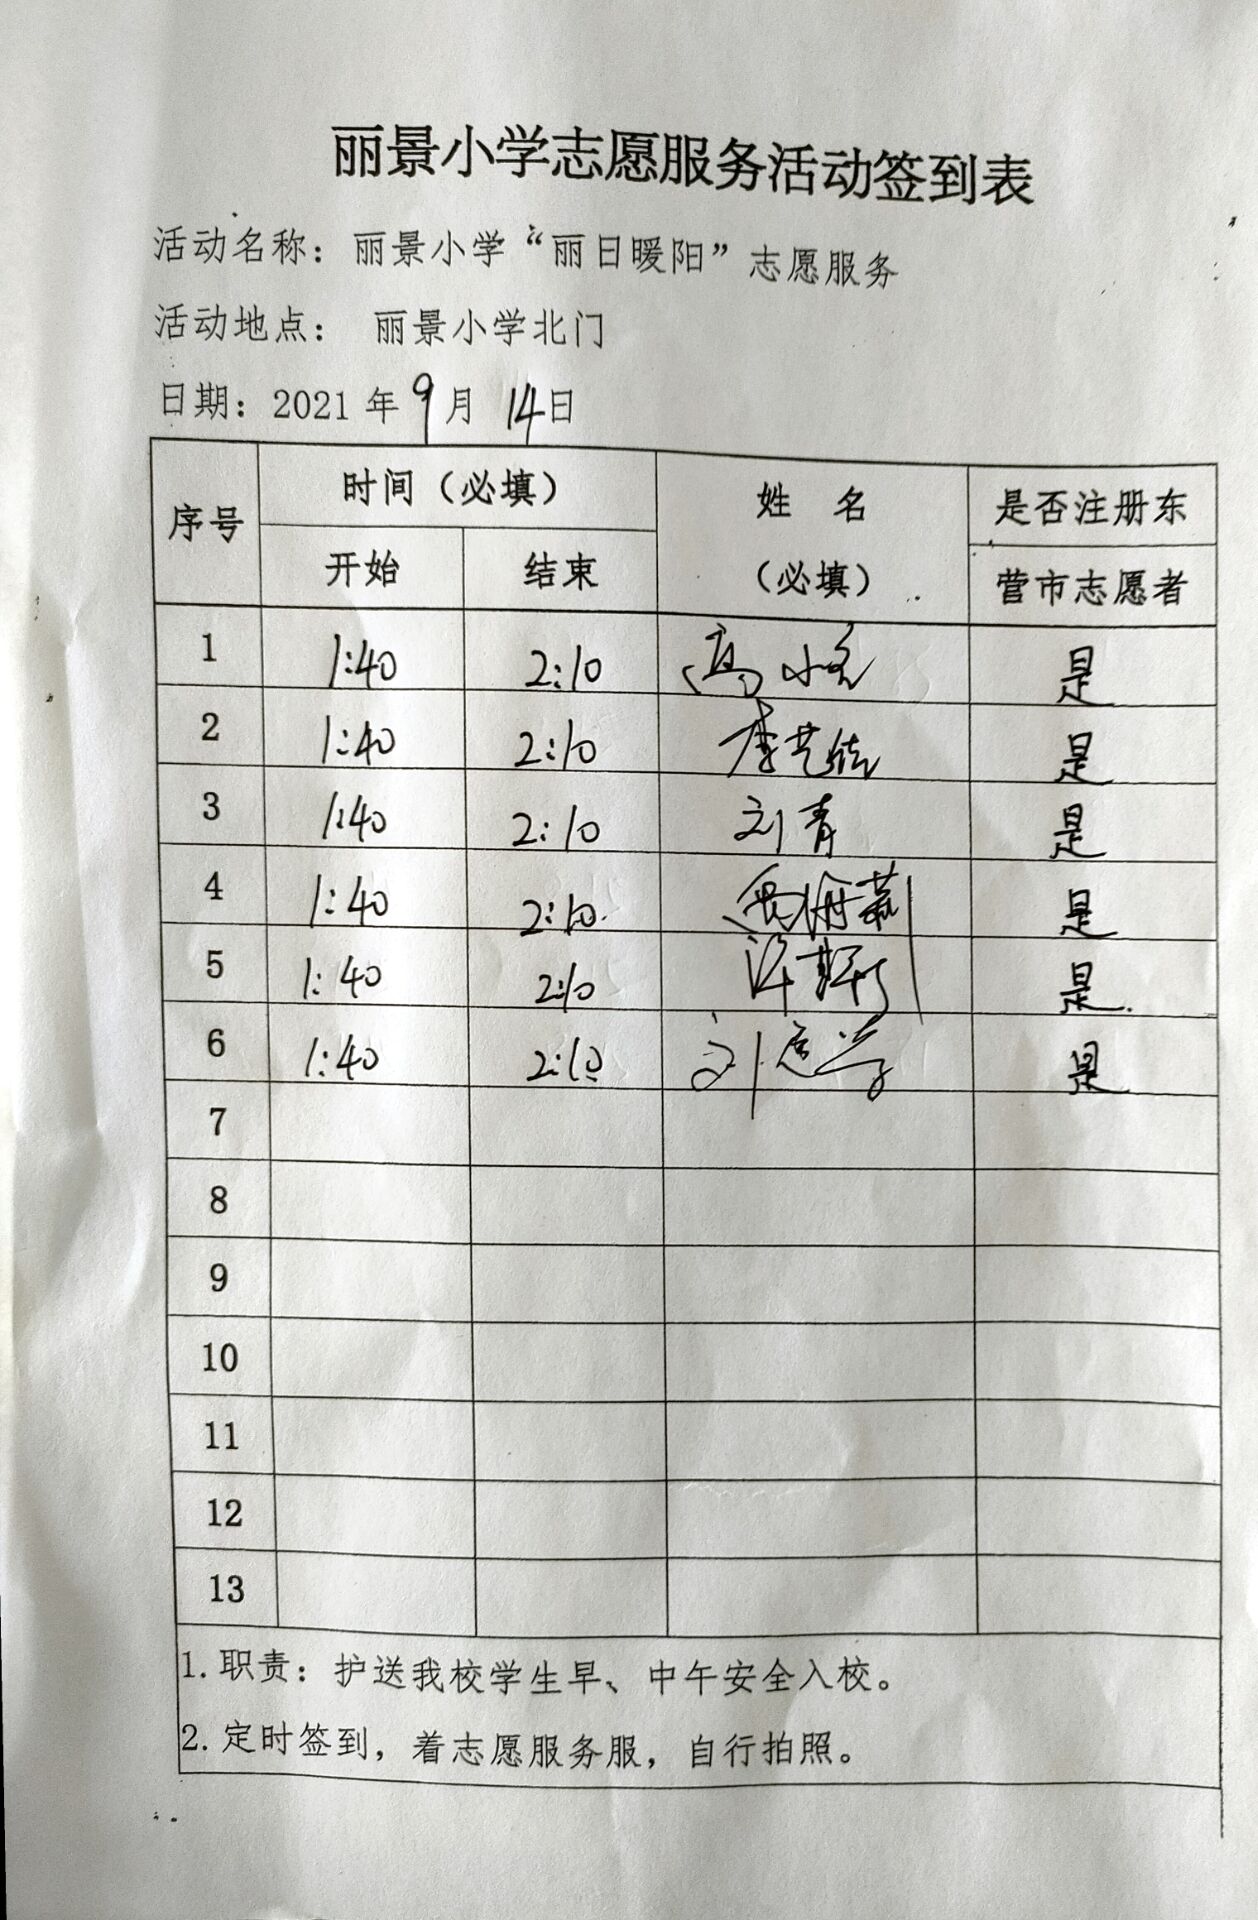 丽景小学志愿服务活动签到表
活动名称：丽景小学“丽日暖阳”志愿服务
活动地点： 丽景小学北门
日期：2021 年 9 月 14 日
序号 时间（必填） 姓 名 是否注册东
开始 结束 （必填） 营市志愿者
1 1:40 2:10 是
2 1:40 2:10 是
3 1:40 2:10 刘青 是
4 1:40 2:10 是
5 1:40 2:10 是
6 1:40 2:10 是
7
8
9
10
11
12
13
1. 职责：护送我校学生早、中午安全入校。
2. 定时签到，着志愿服务服，自行拍照。